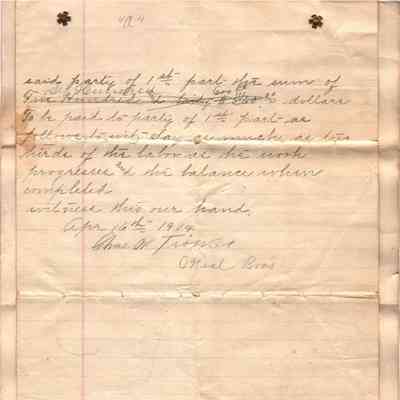 "2"
said party of 1st part the sum of
Six Hundred
Five Hundred & dollars
To be paid to party of 1st part as
follows to wit say as much as two
thirds of the labor as the work
progresses & the balance when
completed
witness this our hand.
Apr 16th 1904
Chas W.
O'Neal Bros